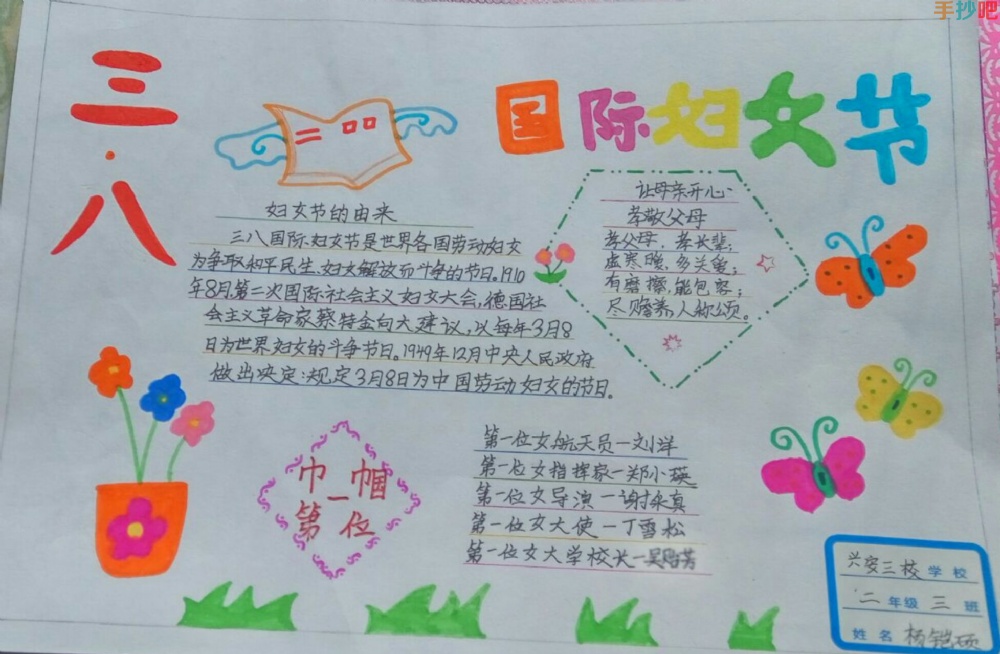 手抄吧
三·八
国际妇女节
妇女节的由来
三八国际妇女节是世界各国劳动妇女
为争取和平民生、妇女解放而斗争的节日。1910
年8月,第二次国际社会主义妇女大会,德国社
会主义革命家蔡特金向大建议,以每年3月8
日为世界妇女的斗争节日。1949年12月中央人民政府
做出决定:规定3月8日为中国劳动妇女的节日。
让母亲开心
孝敬父母
孝父母,孝长辈;
虚寒暖,多关爱;
有磨擦,能包容;
尽赡养,人称颂。
巾帼
第一位
第一位女航天员—刘洋
第一位女指挥家—郑小瑛
第一位女导演—谢采真
第一位女大使—丁雪松
第一位女大学校长—吴贻芳
兴安三校学校
二年级三班
姓名 杨铠硕